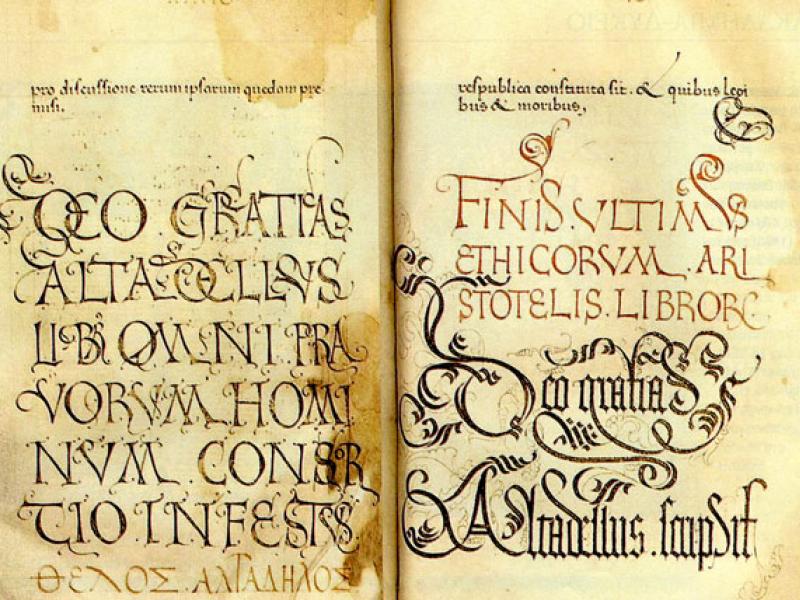 pro discussione rerum ipsarum quedam pre-
misi.
DEO GRATIAS
ALTADELLVS
LIBR OMNI PRA
VORVM HOMI
NVM CONSOR
TIO INFESTVS
ΘΕΛΟΣ . ΑΛΤΑΔΗΛΟΣ
respublica constituta sit. & quibus legi
bus & moribus,
FINIS VLTIMVS
ETHICORVM ARI
STOTELIS LIBRORV
Deo gratias
Altadellus . scripsit